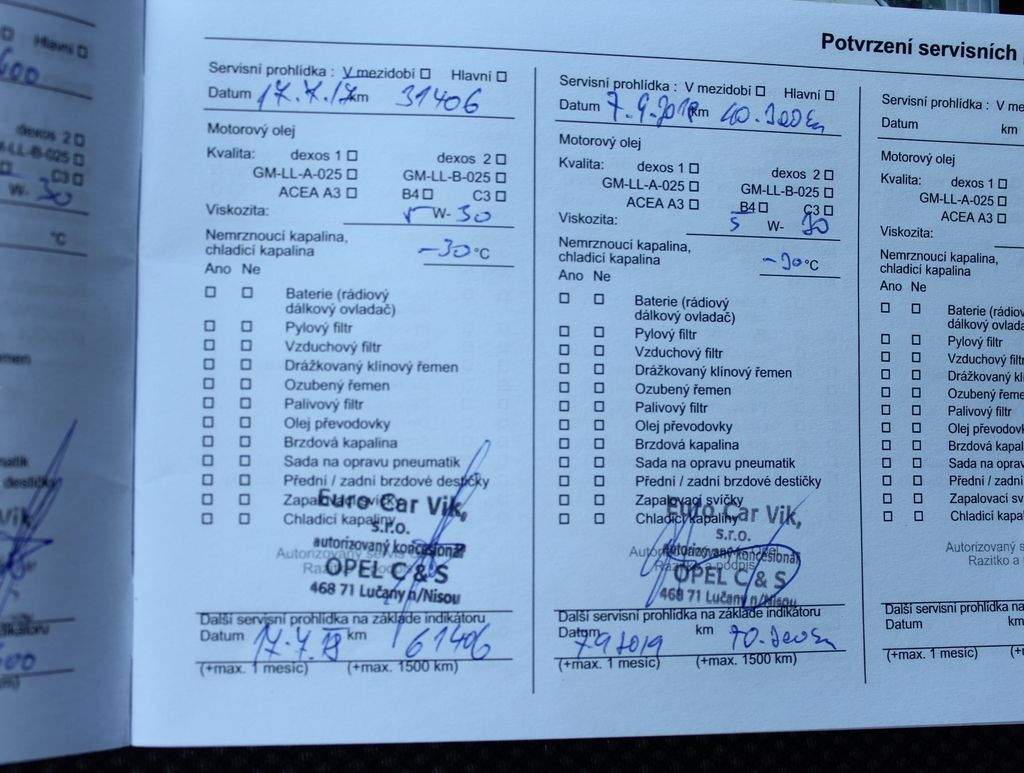 Hlavní
600
dexos 2
M-LL-B-025
C3
W- 30
°C
Potvrzení servisních
Servisní prohlídka : V mezidobí Hlavní
Datum 17.7.17 km 31406
Motorový olej
Kvalita: dexos 1 dexos 2
GM-LL-A-025 GM-LL-B-025
ACEA A3 B4 C3
Viskozita: 5 W- 30
Nemrznoucí kapalina,
chladicí kapalina -30 °C
Ano Ne
Baterie (rádiový
dálkový ovladač)
Pylový filtr
Vzduchový filtr
Drážkovaný klínový řemen
Ozubený řemen
Palivový filtr
Olej převodovky
Brzdová kapalina
Sada na opravu pneumatik
Přední / zadní brzdové destičky
Zapalovací svíčky
Chladicí kapaliny
Euro Car Vik,
s.r.o.
autorizovaný koncesionář
OPEL C & S
468 71 Lučany n/Nisou
Další servisní prohlídka na základě indikátoru
Datum 17.7.18 km 61406
(+max. 1 měsíc) (+max. 1500 km)
Servisní prohlídka : V mezidobí Hlavní
Datum 7.9.2018 km
Motorový olej
Kvalita: dexos 1 dexos 2
GM-LL-A-025 GM-LL-B-025
ACEA A3 B4 C3
Viskozita: 5 W- 30
Nemrznoucí kapalina,
chladicí kapalina -30 °C
Ano Ne
Baterie (rádiový
dálkový ovladač)
Pylový filtr
Vzduchový filtr
Drážkovaný klínový řemen
Ozubený řemen
Palivový filtr
Olej převodovky
Brzdová kapalina
Sada na opravu pneumatik
Přední / zadní brzdové destičky
Zapalovací svíčky
Chladicí kapaliny
Euro Car Vik,
s.r.o.
autorizovaný koncesionář
Razítko a podpis
OPEL C & S
468 71 Lučany n/Nisou
Další servisní prohlídka na základě indikátoru
Datum 7.9.2019 km
(+max. 1 měsíc) (+max. 1500 km)
Servisní prohlídka : V me
Datum km
Motorový olej
Kvalita: dexos 1
GM-LL-A-025
ACEA A3
Viskozita:
Nemrznoucí kapalina,
chladicí kapalina
Ano Ne
Baterie (rádiov
dálkový ovlada
Pylový filtr
Vzduchový filtr
Drážkovaný kl
Ozubený řeme
Palivový filtr
Olej převodovk
Brzdová kapal
Sada na opravu
Přední / zadní
Zapalovací sv
Chladicí kapa
Autorizovaný s
Razítko a
Další servisní prohlídka na
Datum km
(+max. 1 měsíc)